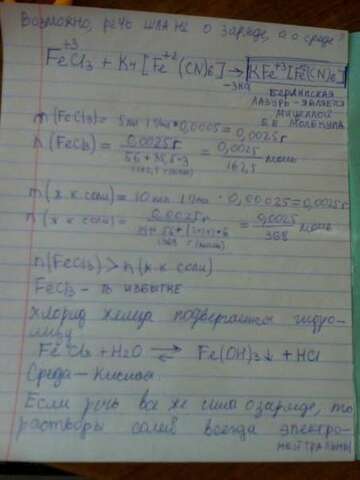 Возможно, речь шла не о заряде, а о среде?
+3
FeCl3 + K4 [Fe+2(CN)6] → KFe+3[Fe(CN)6]
-3KCl
Берлинская
лазурь - является
мицеллой
m(FeCl3) = 5мл · 1г/мл * 0,0005 = 0,0025г
n(FeCl3) = 0,0025г / 56+35,5·3 = 0,0025 / 162,5 моль
(162,5 г/моль)
m(ж к соли) = 10мл · 1г/мл · 0,00025 = 0,0025г
n(ж к соли) = 0,0025г / = 0,0025 / 368 моль
(368 г/моль)
n(FeCl3) > n(ж к соли)
FeCl3 - в избытке
хлорид железа подвергается гидро-
лизу
FeCl3 + H2O ⇄ Fe(OH)3↓ + HCl
Среда - кислая
Если речь все же шла о заряде, то
растворы солей всегда электро-
нейтральны